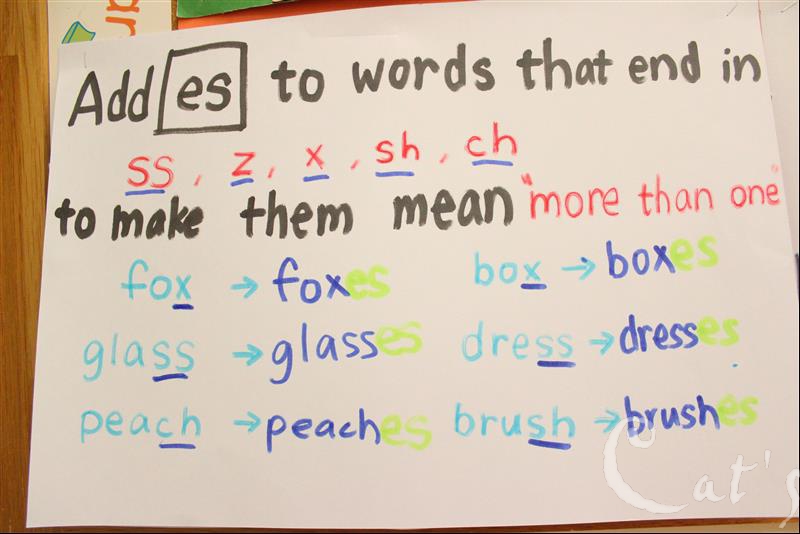 Add es to words that end in
ss, z, x, sh, ch
to make them mean "more than one"
fox → foxes box → boxes
glass → glasses dress → dresses
peach → peaches brush → brushes
Cat's